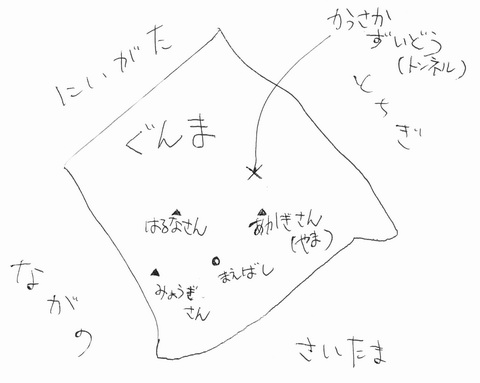 かっさか
ずいどう
(トンネル)
にいがた
とちぎ
ぐんま
はるなさん
あかぎさん
(やま)
まえばし
みょうぎ
さん
ながの
さいたま